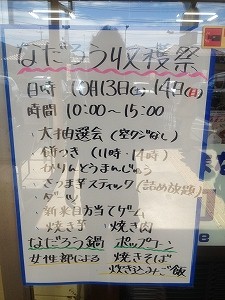 なだろう収穫祭
日時 10月13日(土) 14日(日)
時間 10:00～15:00
・大抽選会(空クジなし)
・餅つき(11時・14時)
・かりんとうまんじゅう
・さつま芋スティック(詰め放題)
・新米目方当てゲーム
・焼き芋 ・焼き肉
なだろう鍋 ポップコーン
女性部による 焼きそば
炊き込みご飯